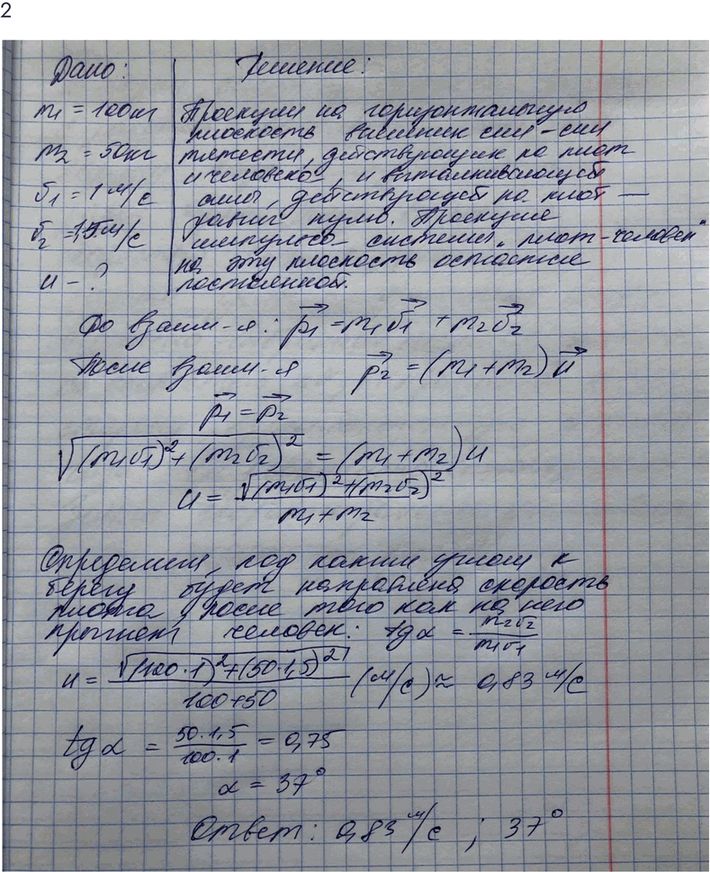 2
Дано:
Решение:
m1 = 100кг
m2 = 50кг
v1 = 1 м/с
v2 = 1,5м/с
u - ?
Проекции на горизонтальную
плоскость внешних сил - сил
тяжести, действующих на плот
и человека, и выталкивающей
силы, действующей на плот —
равны нулю. Проекция
импульса системы "плот-человек"
на эту плоскость остается
постоянной.
До взаим-я: p1 = m1v1 + m2v2
После взаим-я p2 = (m1+m2)u
p1 = p2
√(m1v1)²+(m2v2)² = (m1+m2)u
u = √(m1v1)²+(m2v2)² / m1+m2
Определим, под каким углом к
берегу будет направлена скорость
плота, после того как на него
прыгнет человек: tg α = m2v2 / m1v1
u = √(100·1)²+(50·1,5)² / 100+50 (м/с) ≈ 0,83 м/с
tg α = 50·1,5 / 100·1 = 0,75
α = 37°
Ответ: 0,83 м/с ; 37°